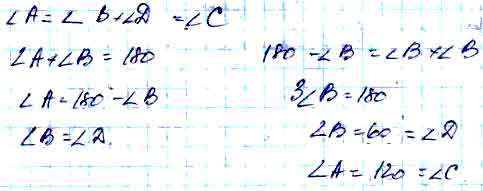 ∠A = ∠B + ∠D = ∠C
∠A + ∠B = 180
∠A = 180 - ∠B
∠B = ∠D.
180 - ∠B = ∠B + ∠B
3∠B = 180
∠B = 60 = ∠D
∠A = 120 = ∠C